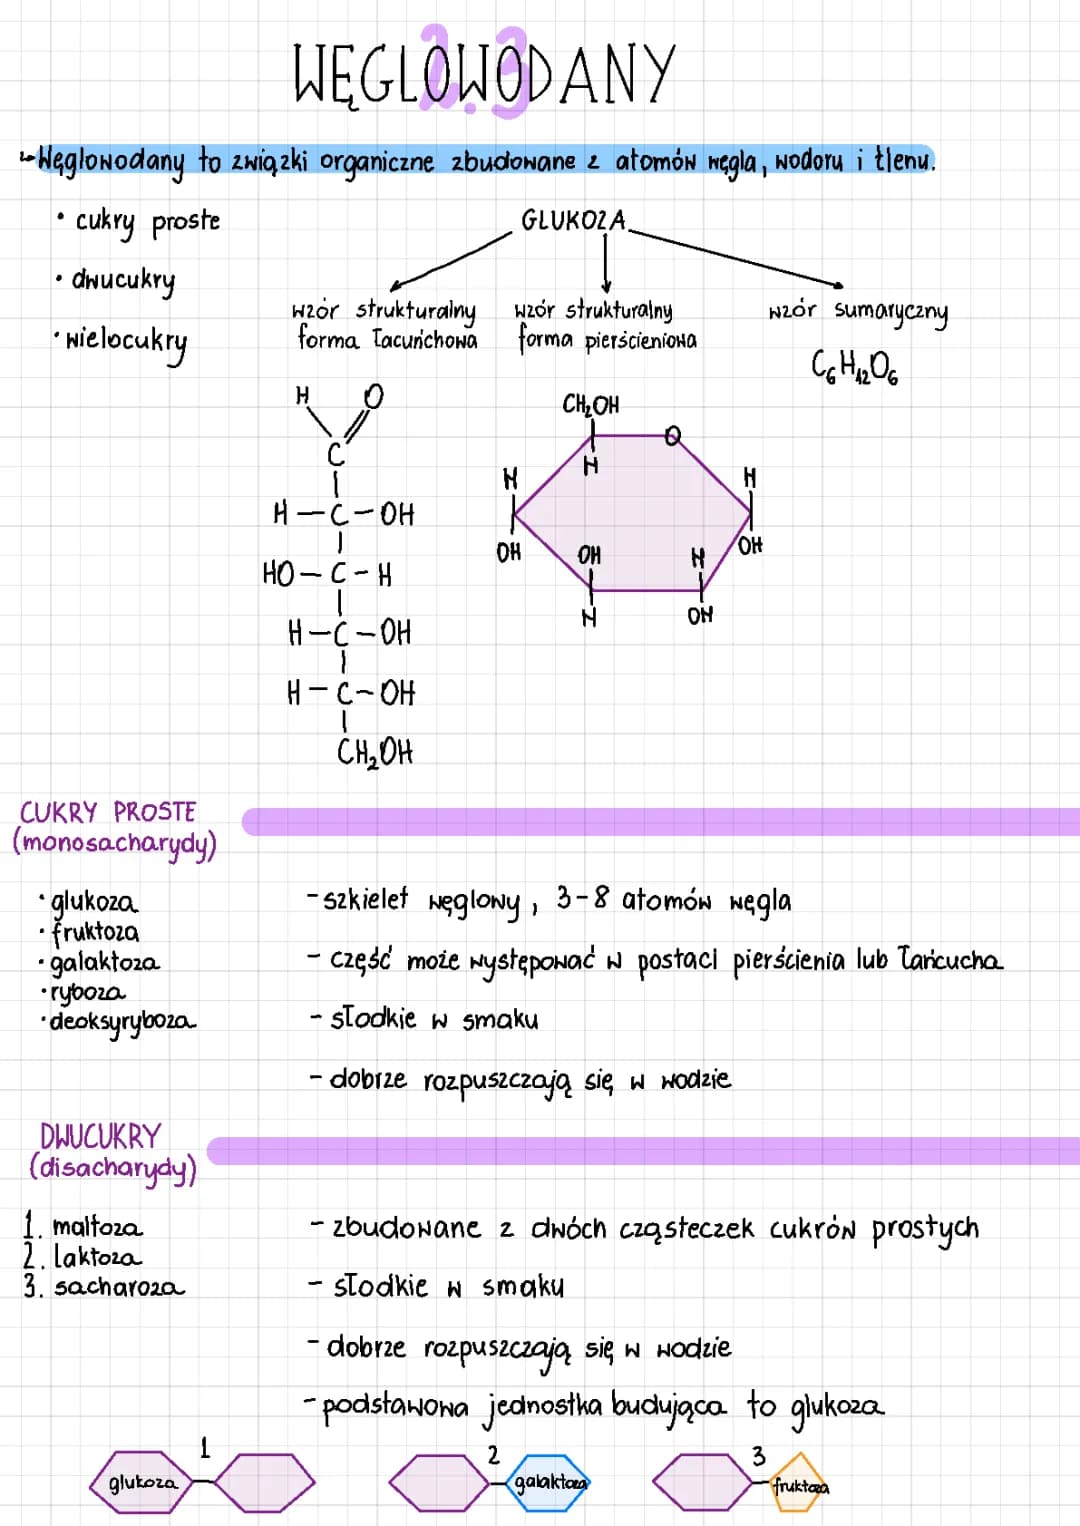 2.3
WĘGLOWODANY
↳Węglowodany to związki organiczne zbudowane z atomów węgla, wodoru i tlenu.
• cukry proste
• dwucukry
• wielocukry
GLUKOZA
wzór strukturalny
forma łacuńchowa
wzór strukturalny
forma pierścieniowa
wzór sumaryczny
C₆H₁₂O₆
H O
C
H-C-OH
HO-C-H
H-C-OH
H-C-OH
CH₂OH
CH₂OH
O
H H H
OH OH H OH
H OH
CUKRY PROSTE
(monosacharydy)
• glukoza
• fruktoza
• galaktoza
• ryboza
• deoksyryboza
- szkielet węglowy, 3-8 atomów węgla
- część może występować w postaci pierścienia lub łańcucha
- słodkie w smaku
- dobrze rozpuszczają się w wodzie
DWUCUKRY
(disacharydy)
1. maltoza
2. laktoza
3. sacharoza
- zbudowane z dwóch cząsteczek cukrów prostych
- słodkie w smaku
- dobrze rozpuszczają się w wodzie
- podstawowa jednostka budująca to glukoza
1
glukoza
2
galaktoza
3
fruktoza